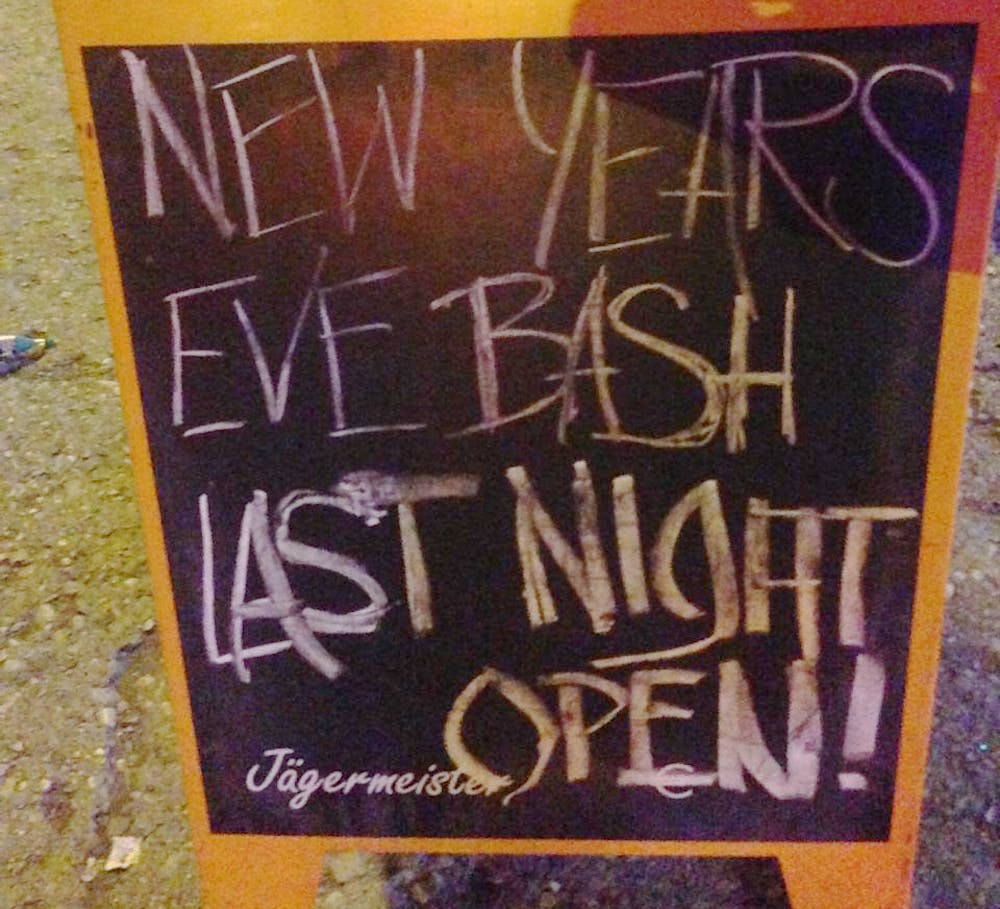 NEW YEARS
EVE BASH
LAST NIGHT!
OPEN!
Jägermeister €